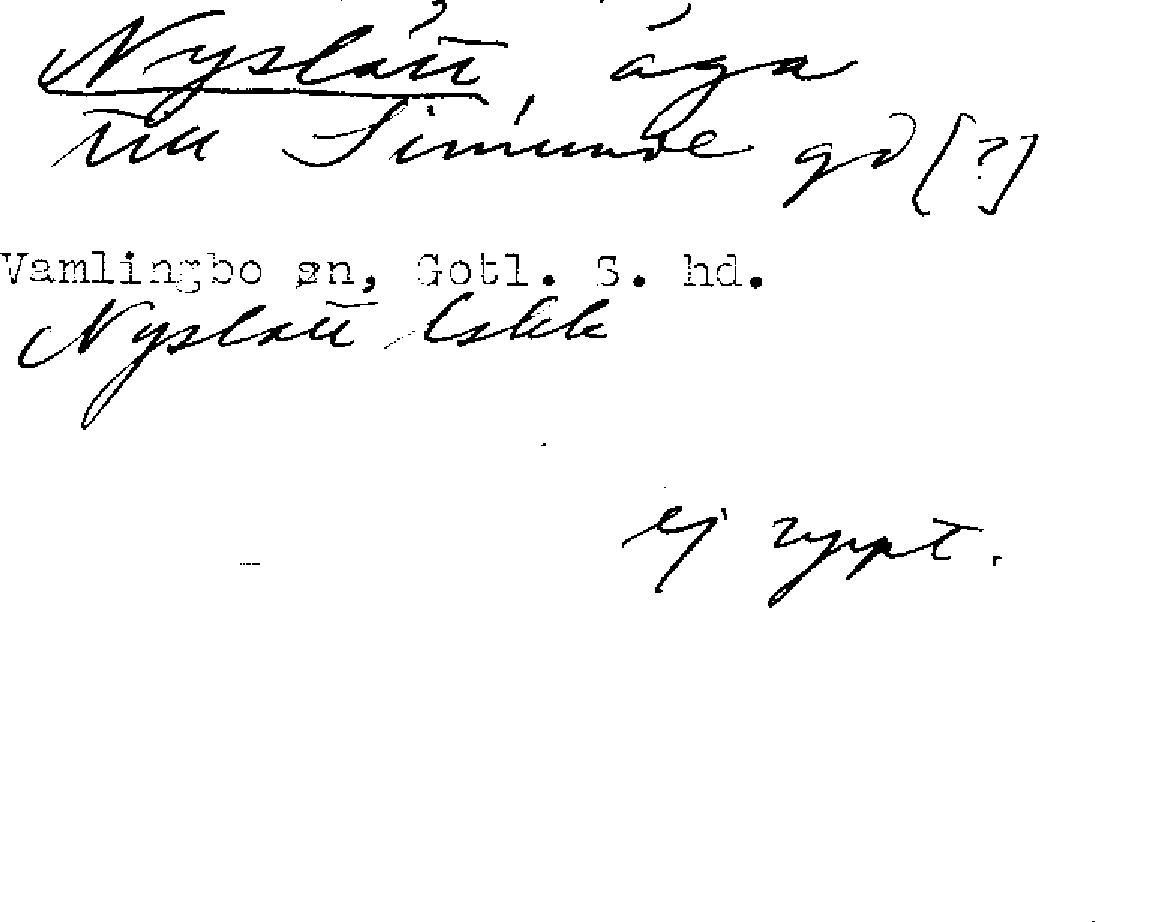 Nyslätt, äga
till Simunde gd [?]
Vamlingbo sn, Gotl. S. hd.
Nyslätt Lskk
ej uppt.